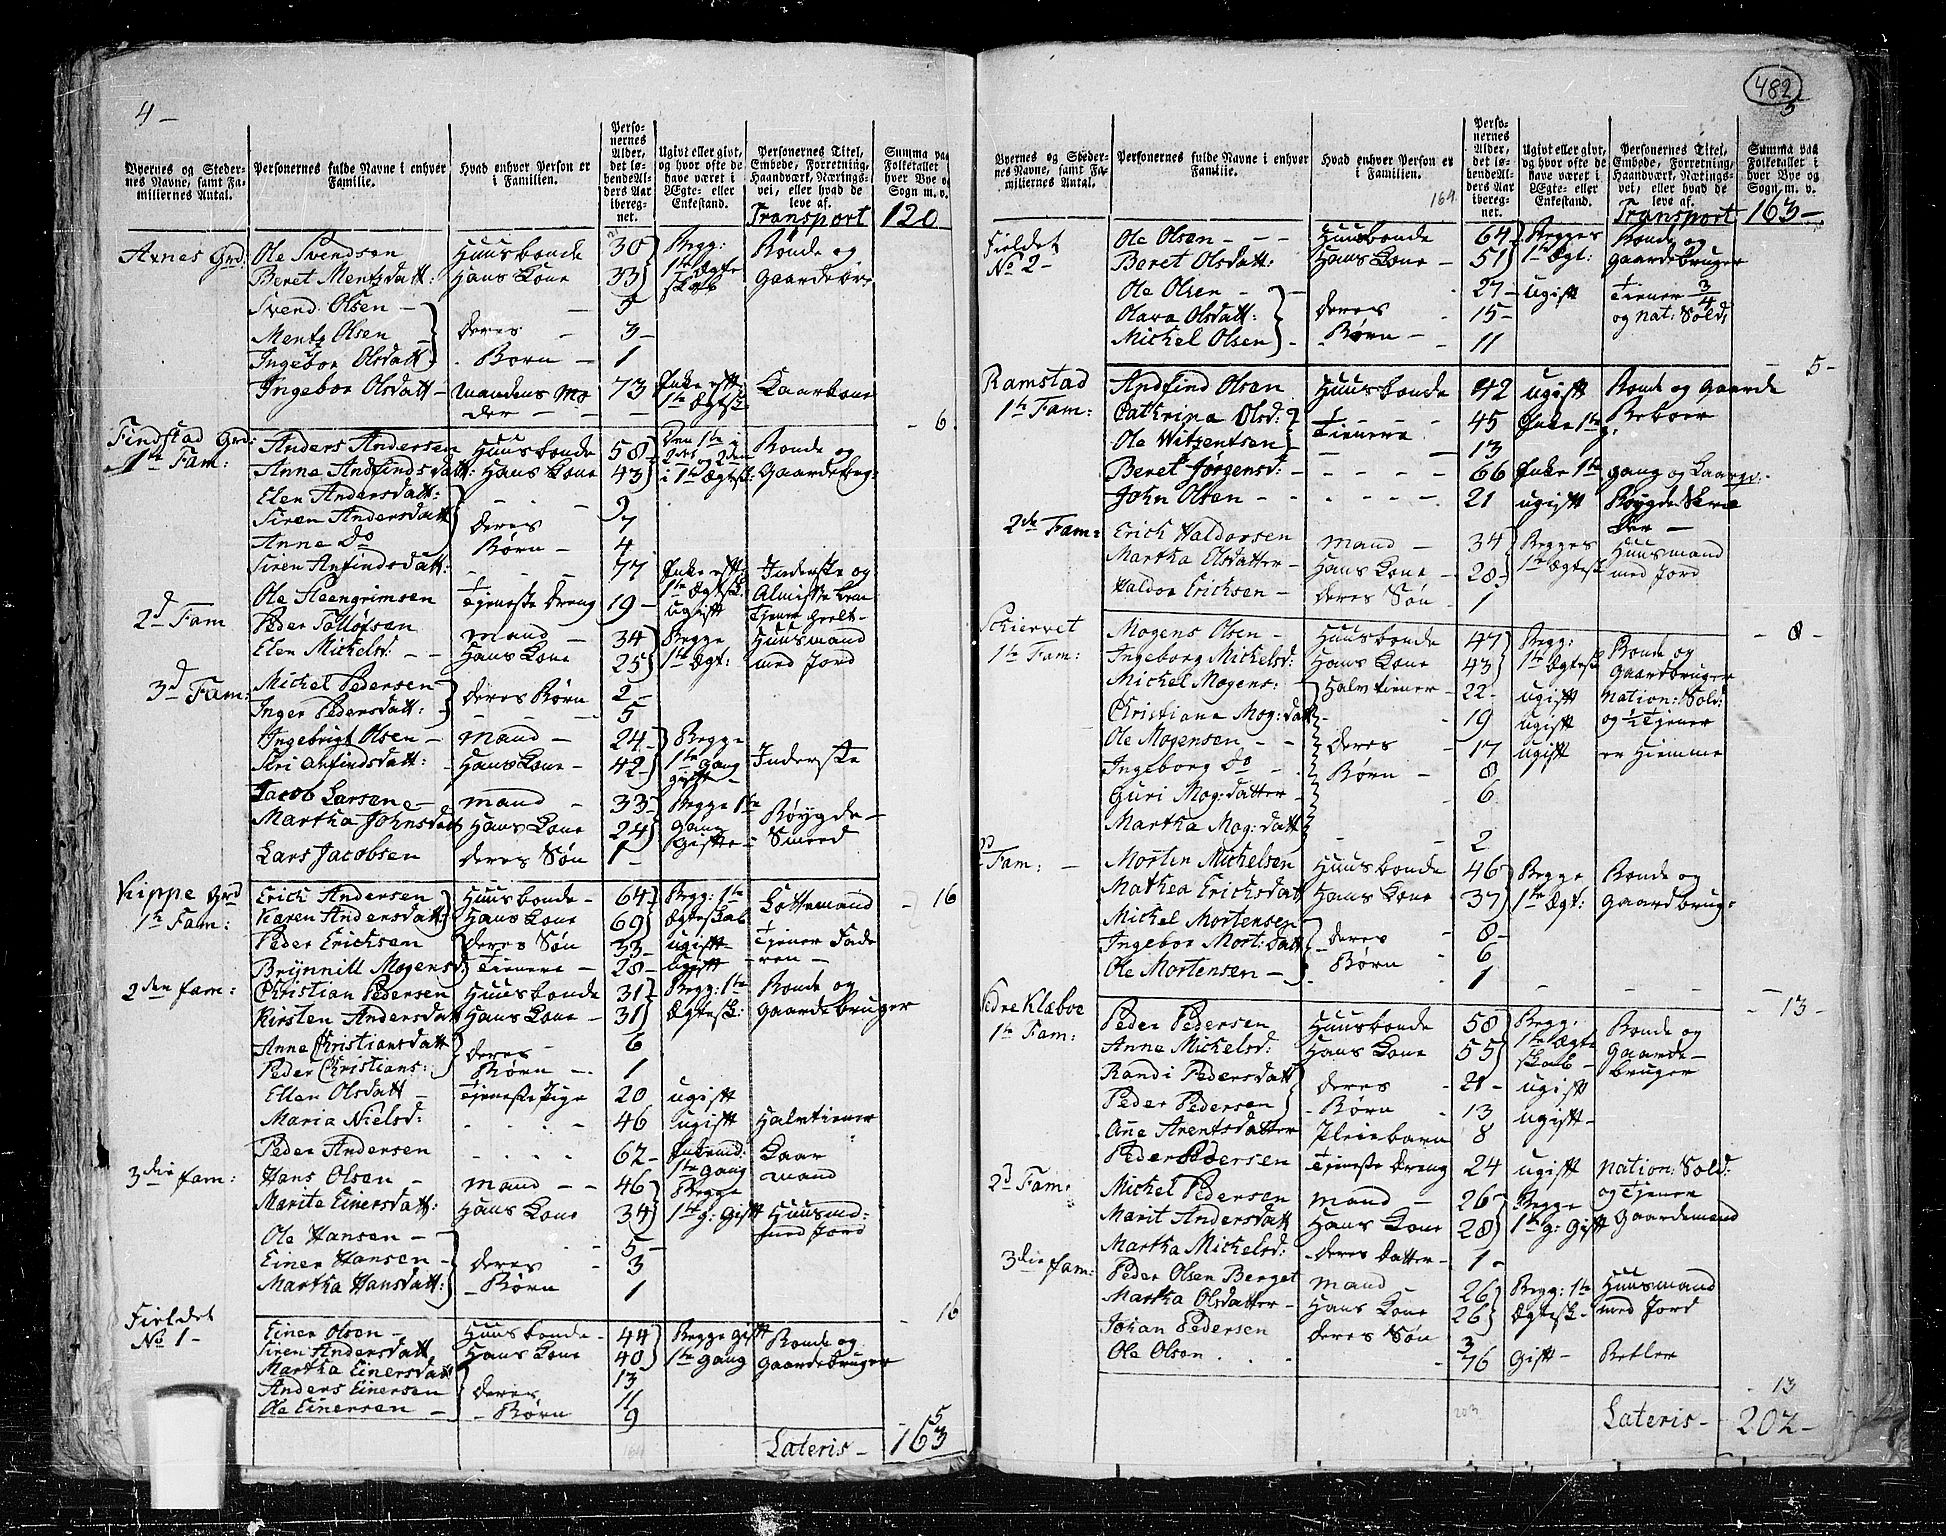 4 –
Byernes og Stedernes Navne, samt Familiernes Antal.
Personernes fulde Navne i enhver Familie.
Hvad enhver Person er i Familien.
Personernes Alder, det løbende Alders Aar iberegnet.
Ugivt eller givt, og hvor ofte de have været i Ægte- eller Enkestand.
Personernes Titel, Embede, Forretning, Haandværk, Næringsvei, eller hvad de leve af.
Summa paa Folketallet i hver Bye og Sogn m. v.
Transport 120
Axnes Grd: Ole Svendsen Huusbonde 30 Begg: Bonde og
Beret Mentzdatt: Hans Kone 33 1te Ægte skab Gaardebr:
Svend Olsen – 5
Mentz Olsen deres 3 –
Ingebor Olsdatt Børn – 1
Ingebor Olsdatt – Mandens Moder 73 Enke eftt: 1te Ægtsk: Kaarkone
6
Findstad Grd: Anders Andersen Huusbonde 58 Den 1te i Bonde og
1te Fam: Anne Andfindsdatt: Hans Kone 43 i 1te Ægtesk: Gaardebrg:
Elen Andersdatt: 9
Siren Andersdatt deres 7
Anne Do Børn – 4
Siren Anfindsdatt: 77 Enke eftt: 1te Ægtesk: Inderste og
Ole Steengrimsen Tjeneste Dreng 19 – ugift
2d Fam Peder Tølløfsen Mand – 34 Begge Huusmand
Elen Mickelsd: – – Hans Kone 25 1te Ægt: med Jord
Mickel Pedersen deres Børn 2 –
3d Fam: Inger Pedersdatt: 5
Ingebrigt Olsen – Mand – 24 – Begge Inderste
Siri Anfindsdatt: Hans Kone – 42 – 1te Gang gifte
Jacob Larsen – Mand – 33 – Begge 1te Bøygde –
Martha Johnsdatt Hans Kone 24 Gang Gifte – Smeed
Lars Jacobsen deres Søn 1 –
Kippe Grd Erich Andersen Huusbonde – 64 Begg: 1te – 16
1te Fam: Karen Andersdatt: Hans Kone 69 Ægteskab
Peder Ericksen deres Søn 33 – ugift – Tjener Faderen –
Brynnill Mogensd: Tienere – 28 – Ugift
2den fam: Christian Pedersen Huusbonde 31 Begg: 1te Bonde og
Kirsten Andersdatt Hans Kone – 31 Ægtesk: Gaardebruger
Anne Christiansdatt deres 6
Peder Christians: Børn – 1
Ellen Olsdatt Tjeneste Pige 20 ugift
Maria Nielsd: 46 ugift Halvtiener
Peder Andersen 62 – 1te Gang Kaarmand
3die fam: Hans Olsen – Mand – – 46 Begge
Marite Einersdatt: Hans Kone 34 1te g: Gift Huusmd: med Jord
Ole Hansen – 5 –
Einer Hansen – deres 3
Martha Hansdatt: – Børn 1
– 16
Fieldet Einer Olsen – Huusbonde – 44 Begge Gift Bonde og
No 1 – Siren Andersdatt Hans Kone 40 1te Gang Gaardebruger
Martha Einersdatt 13
Anders Einersen deres 11
Ole Einersen – – Børn 9
– 5
Lateris – 163
482
5
Byernes og Stedernes Navne, samt Familiernes Antal.
Personernes fulde Navne i enhver Familie.
Hvad enhver Person er i Familien.
164
Personernes Alder, det løbende Alders Aar iberegnet.
Ugivt eller givt, og hvor ofte de have været i Ægte- eller Enkestand.
Personernes Titel, Embede, Forretning, Haandværk, Næringsvei, eller hvad de leve af.
Summa paa Folketallet i hver Bye og Sogn m. v.
Transport 163 –
Fieldet Ole Olsen – – – Huusbonde 64 Begges Bonde og
No 2 – Beret Olsdatt: Hans Kone – 51 1te Ægt: Gaardebruger
Ole Olsen – 27 – ugift Tiener 3/4
Olava Olsdatt: deres 15 – og nat: Sold:
Mickel Olsen Børn – 11
5 –
Ramstad Andfind Olsen Huusbonde 42 ugift Bonde og Gaarde
1te Fam: Cathrina Olsd: Tienere 45 Enke 1te Beboer
Ole Witzentsen 13
Beret Jørgensd: – – – – 66 Enke 1te gang
John Olsen – – 21 ugift Bøygde Skrædder –
2de Fam: Erich Haldorsen Mand – 34 Begges Huusmand
Martha Olsdatter – Hans Kone – 28 1te Ægtesk med Jord
Haldor Ericksen – deres Søn – 1
– 8 –
Schiervet Mogens Olsen – Huusbonde 47 Begg: Bonde og
1te Fam: Ingeborg Mickelsd: Hans Kone 43 1te Ægtesk Gaardbruger
Mickel Mogens: Halv tiener – 22 – ugift Nation: Sold:
Christiana Mog: datt – 19 ugift og 1/2 Tjener
Ole Mogensen – – deres – 17 ugift er Hiemme
Ingeborg Do – Børn – 8
Guri Mog: datter – 6
Martha Mog: datt 2
2d Fam: – Morten Mickelsen Huusbonde 46 Begge Bonde og
Mathea Ericksdatt Hans Kone 37 1te Ægt: Gaardbrug:
Mickel Mortensen deres 8 –
Ingebor Mort: datt Børn – 6
Ole Mortensen – 1
– 13 –
Øvre Klæboe Peder Pedersen Huusbonde 58 Begg: Bonde og
1te Fam: Anne Mickelsd: Hans Kone 55 1te Ægteskab – Gaardebruger
Randi Pedersdatt deres 21 – ugift
Peder Pedersen – Børn 13 ugift –
Ane Arentsdatter Pleiebarn 8
Peder Pedersen Tjeneste Dreng 24 ugift Nation: Sold: og Tjener
2d Fam: Mickel Pedersen Mand – 26 – Begge
Marit Andersdatt Hans Kone 28 1te g: Gift Gaardemand
Martha Mickelsd: – deres datter – 1 –
3die fam: Peder Olsen Berget Mand – 26 Begg: 1te Huusmand
Martha Olsdatter – Hans Kone 26 Ægtesk – med Jord
Johan Pedersen deres Søn 3
Ole Olsen 76 Gift – Betler
– 13
203
Lateris – 202 –